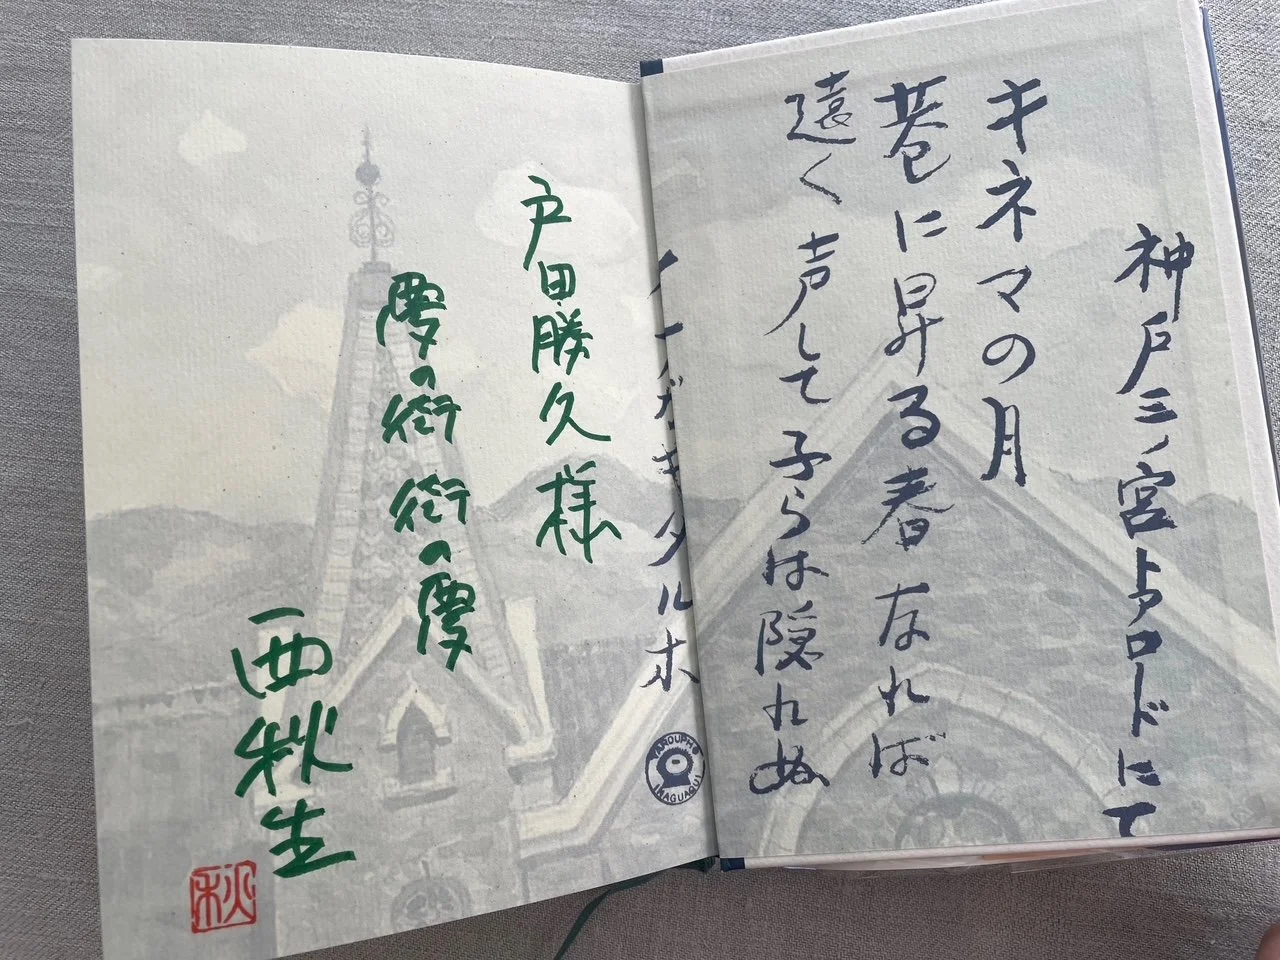 神戸三ノ宮トアロードにて
キネマの月
巷に昇る春なれば
遠く声して子らは隠れぬ
イナガキタルホ
YAROUPHO
INAGUAQUI
戸田勝久様
夢の街
街の夢
西秋生
秋